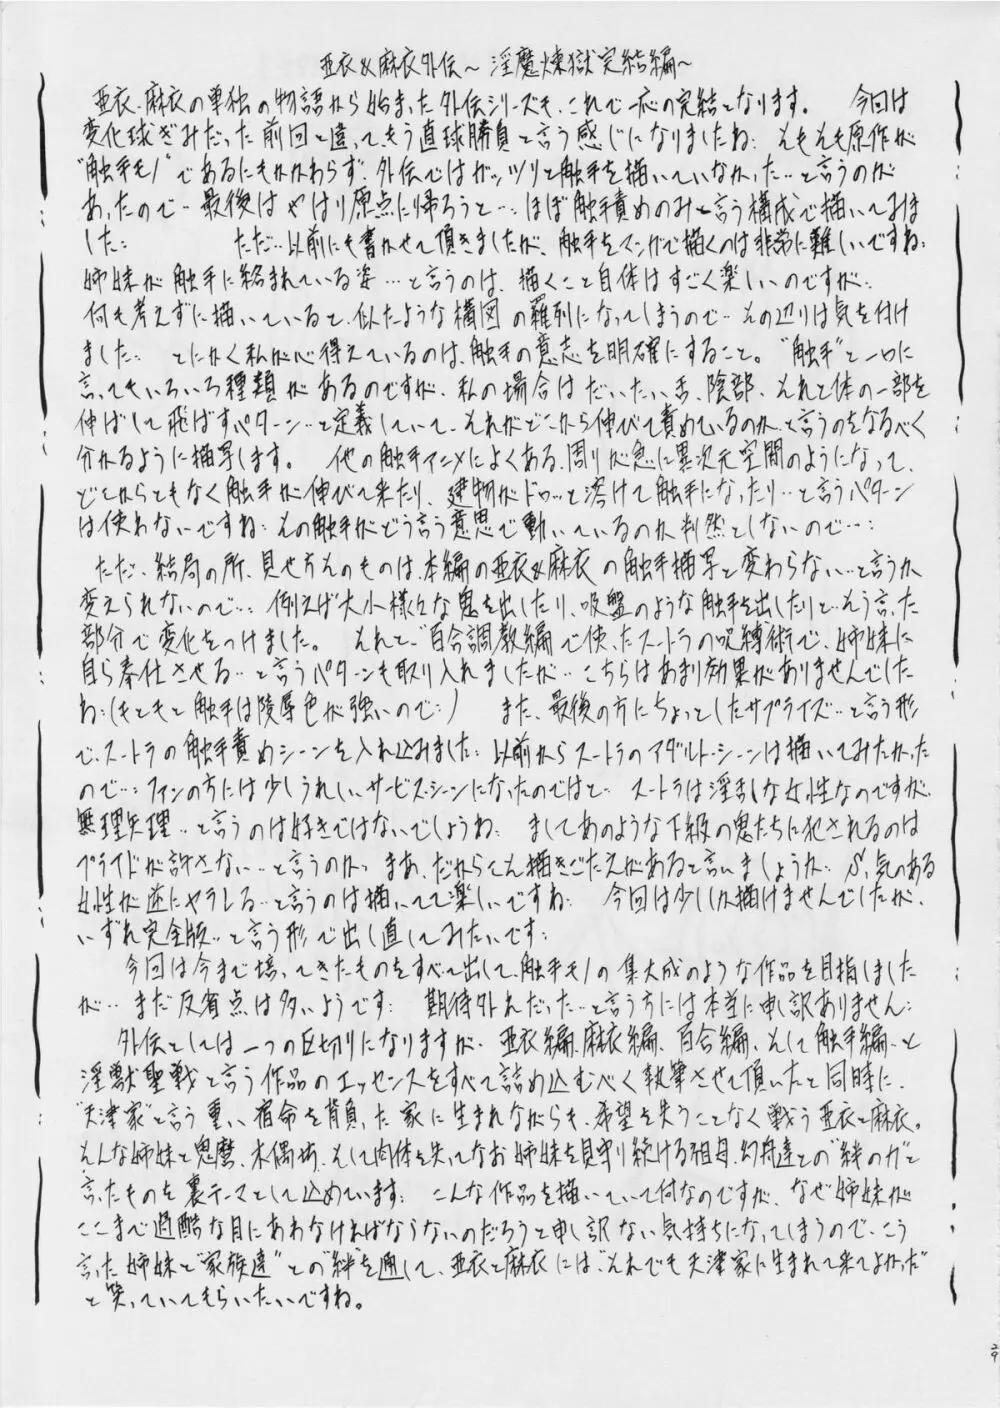 亜衣&麻衣外伝～淫魔煉獄完結編～
亜衣、麻衣の単独の物語から始まった外伝シリーズも、これで一応の完結となります。 今回は
変化球ぎみだった前回と違ってもう直球勝負と言う感じになりましたね… そもそも原作が
"触手モノ"であるにもかかわらず、外伝ではガッツリと触手を描いていなかった…と言うのが
あったので…最後はやはり原点に帰ろうと…ほぼ触手責めのみと言う構成で描いてみま
した… ただ…以前にも書かせて頂きましたが、触手をマンガで描くのは非常に難しいですね…
姉妹が触手に絡まれている姿…と言うのは、描くこと自体はすごく楽しいのですが…
何も考えずに描いていると、似たような構図の羅列になってしまうので…その辺りは気を付け
ました… とにかく私が心得ているのは、触手の意志を明確にすること。"触手"と一口に
言ってもいろいろ種類があるのですが、私の場合はだいたい舌、陰部、それと体の一部を
伸ばして飛ばすパターン…と定義していて、それがどこから伸びて責めているのか、と言うのをなるべく
分かるように描写します。 他の触手アニメによくある、周りが急に異次元空間のようになって、
どこからともなく触手が伸びて来たり、建物がドロッと溶けて触手になったり…と言うパターン
は使わないですね…その触手がどう言う意思で動いているのか判然としないので…
ただ、結局の所、見せ方そのものは、本編の亜衣&麻衣の触手描写と変わらない…と言うか
変えられないので… 例えば大小様々な鬼を出したり、吸盤のような触手を出したりと…そう言った
部分で変化をつけました。 それと、"百合調教編"で使ったスートラの呪縛術で、姉妹に
自ら奉仕させる…と言うパターンも取り入れましたが…こちらはあまり効果がありませんでした
ね…(もともと触手は陵辱色が強いので…) また、最後の方にちょっとしたサプライズ…と言う形
で、スートラの触手責めシーンを入れ込みました… 以前からスートラのアダルト・シーンは描いてみたかった
ので… ファンの方には少しうれしいサービス・シーンになったのではと… スートラは淫乱な女性なのですが、
無理矢理…と言うのは好きではないでしょうね… ましてあのような下級の鬼たちに犯されるのは
プライドが許さない…と言うのか… まあ、だからこそ描きごたえがあると言いましょうか… S気のある
女性が逆にヤラレる…と言うのは描いてて楽しいですね… 今回は少ししか描けませんでしたが、
いずれ完全版…と言う形で出し直してみたいです…
今回は今まで培ってきたものをすべて出して、触手モノの集大成のような作品を目指しました
が… まだ反省点は多いようです… 期待外れだった…と言う方には本当に申し訳ありません…
外伝としては一つの区切りになりますが、亜衣編、麻衣編、百合編、そして触手編…と
淫獣聖戦と言う作品のエッセンスをすべて詰め込むべく執筆させて頂いたと同時に、
"天津家"と言う重い宿命を背負った家に生まれながらも、希望を失うことなく戦う亜衣と麻衣。
そんな姉妹と鬼麿、木偶坊、そして肉体を失ってなお姉妹を見守り続ける祖母、幻舟達との"絆の力"と
言ったものを裏テーマとして込めています… こんな作品を描いていて何なのですが、なぜ姉妹が
ここまで過酷な目にあわなければならないのだろうと申し訳ない気持ちになってしまうので、こう
言った姉妹と"家族達"との"絆"を通して、亜衣と麻衣には、"それでも天津家に生まれて来てよかった"
と笑っていてもらいたいですね。
29